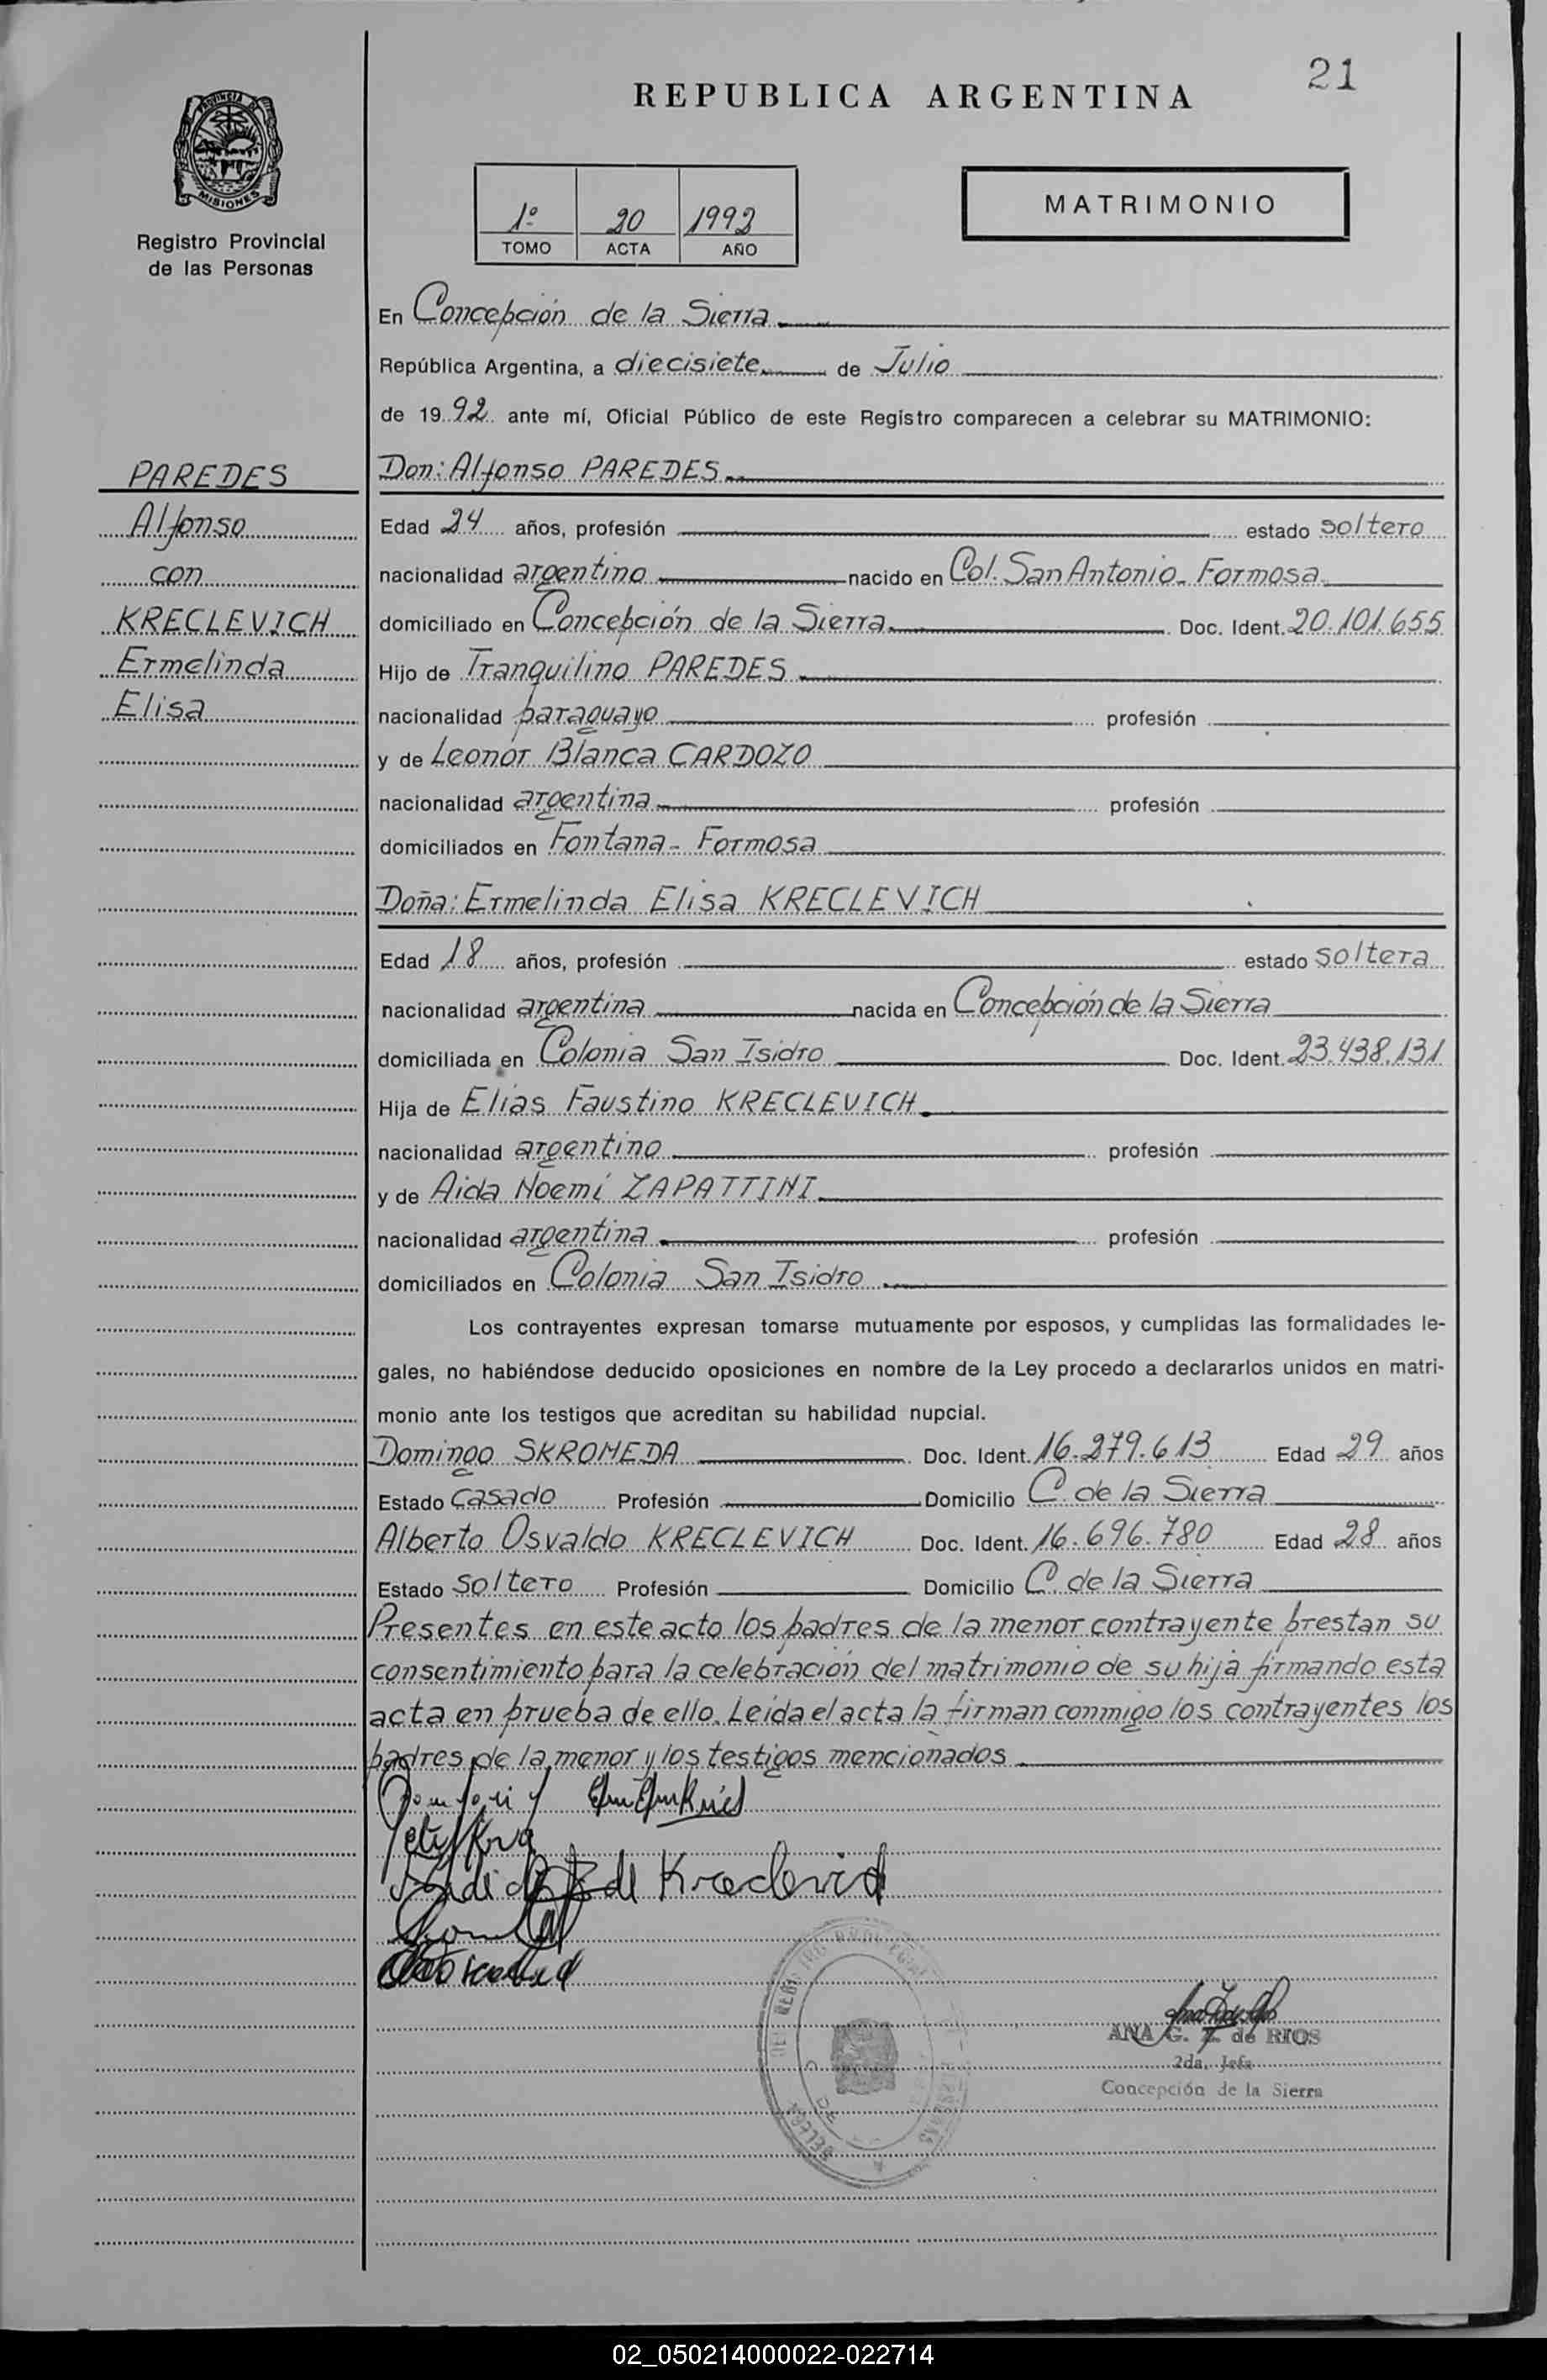 21
REPUBLICA ARGENTINA
PROVINCIA DE
MISIONES
Registro Provincial
de las Personas
1º 20 1992
TOMO ACTA AÑO
MATRIMONIO
En Concepción de la Sierra
República Argentina, a diecisiete de Julio
de 1992 ante mí, Oficial Público de este Registro comparecen a celebrar su MATRIMONIO:
PAREDES
Alfonso
con
KRECLEVICH
Ermelinda
Elisa
Don: Alfonso PAREDES
Edad 24 años, profesión estado soltero
nacionalidad argentino nacido en Col. San Antonio - Formosa
domiciliado en Concepción de la Sierra Doc. Ident. 20.101.655
Hijo de Tranquilino PAREDES
nacionalidad paraguayo profesión
y de Leonor Blanca CARDOZO
nacionalidad argentina profesión
domiciliados en Fontana - Formosa
Doña: Ermelinda Elisa KRECLEVICH
Edad 18 años, profesión estado soltera
nacionalidad argentina nacida en Concepción de la Sierra
domiciliada en Colonia San Isidro Doc. Ident. 23.438.131
Hija de Elias Faustino KRECLEVICH
nacionalidad argentino profesión
y de Aida Noemí ZAPATTINI
nacionalidad argentina profesión
domiciliados en Colonia San Isidro
Los contrayentes expresan tomarse mutuamente por esposos, y cumplidas las formalidades le-
gales, no habiéndose deducido oposiciones en nombre de la Ley procedo a declararlos unidos en matri-
monio ante los testigos que acreditan su habilidad nupcial.
Domingo SKROMEDA Doc. Ident. 16.279.613 Edad 29 años
Estado casado Profesión Domicilio C. de la Sierra
Alberto Osvaldo KRECLEVICH Doc. Ident. 16.696.780 Edad 28 años
Estado soltero Profesión Domicilio C. de la Sierra
Presentes en este acto los padres de la menor contrayente prestan su
consentimiento para la celebración del matrimonio de su hija firmando esta
acta en prueba de ello. Leída el acta la firman conmigo los contrayentes los
padres de la menor y los testigos mencionados
de Kreclevich
ANA G. Z. de RIOS
2da. Jefa
Concepción de la Sierra
02_050214000022-022714